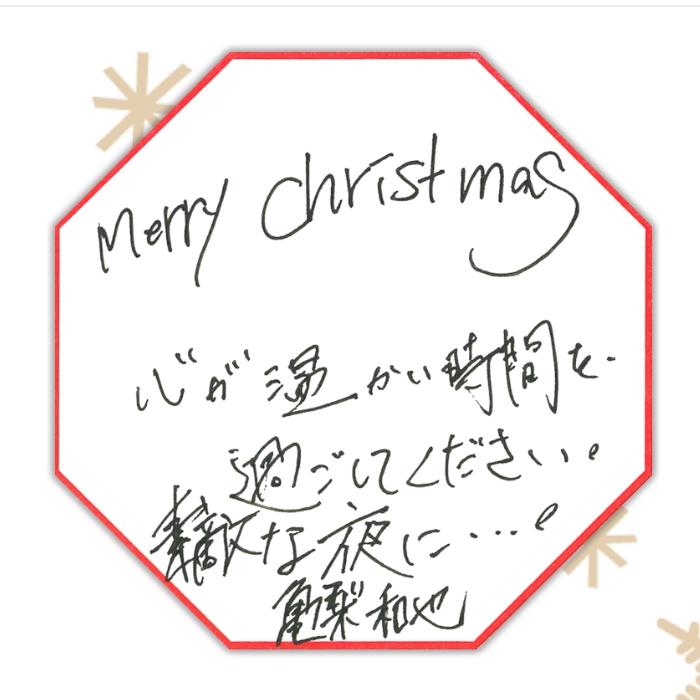 Merry Christmas
心が温かい時間を
過ごしてください。
素敵な夜に…。
亀梨和也